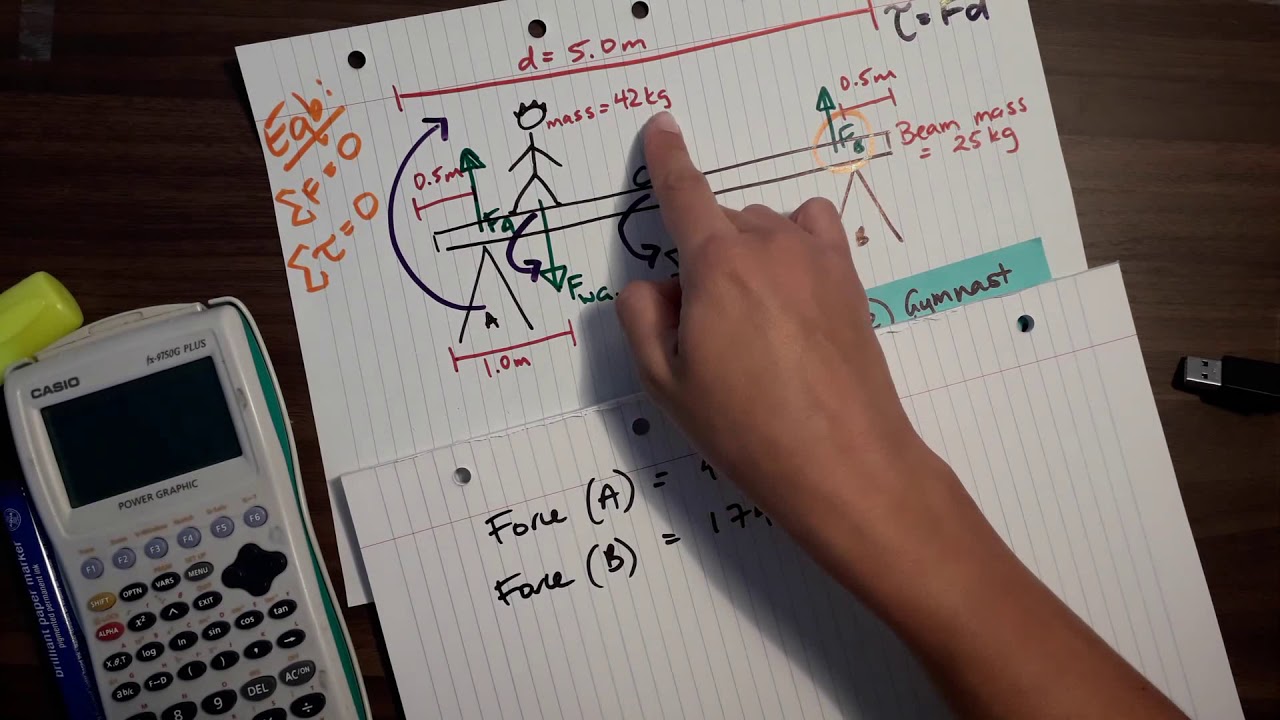 τ = Fd
d = 5.0m
Eqb:
ΣF = 0
Στ = 0
mass = 42kg
0.5m
0.5m
Beam mass
= 25kg
F_B
F_A
C
B
A
1.0m
Gymnast
Force (A) = 4
Force (B) = 174
fx-9750G PLUS
CASIO
POWER GRAPHIC
F1
F2
F3
F4
F5
F6
SHIFT
OPTN
VARS
MENU
SET UP
ALPHA
x²
^
EXIT
X,θ,T
log
ln
sin
cos
tan
ab/c
F↔D
(
)
,
→
8
9
DEL
AC/ON
÷
brilliant paper marker
pigmented permanent ink